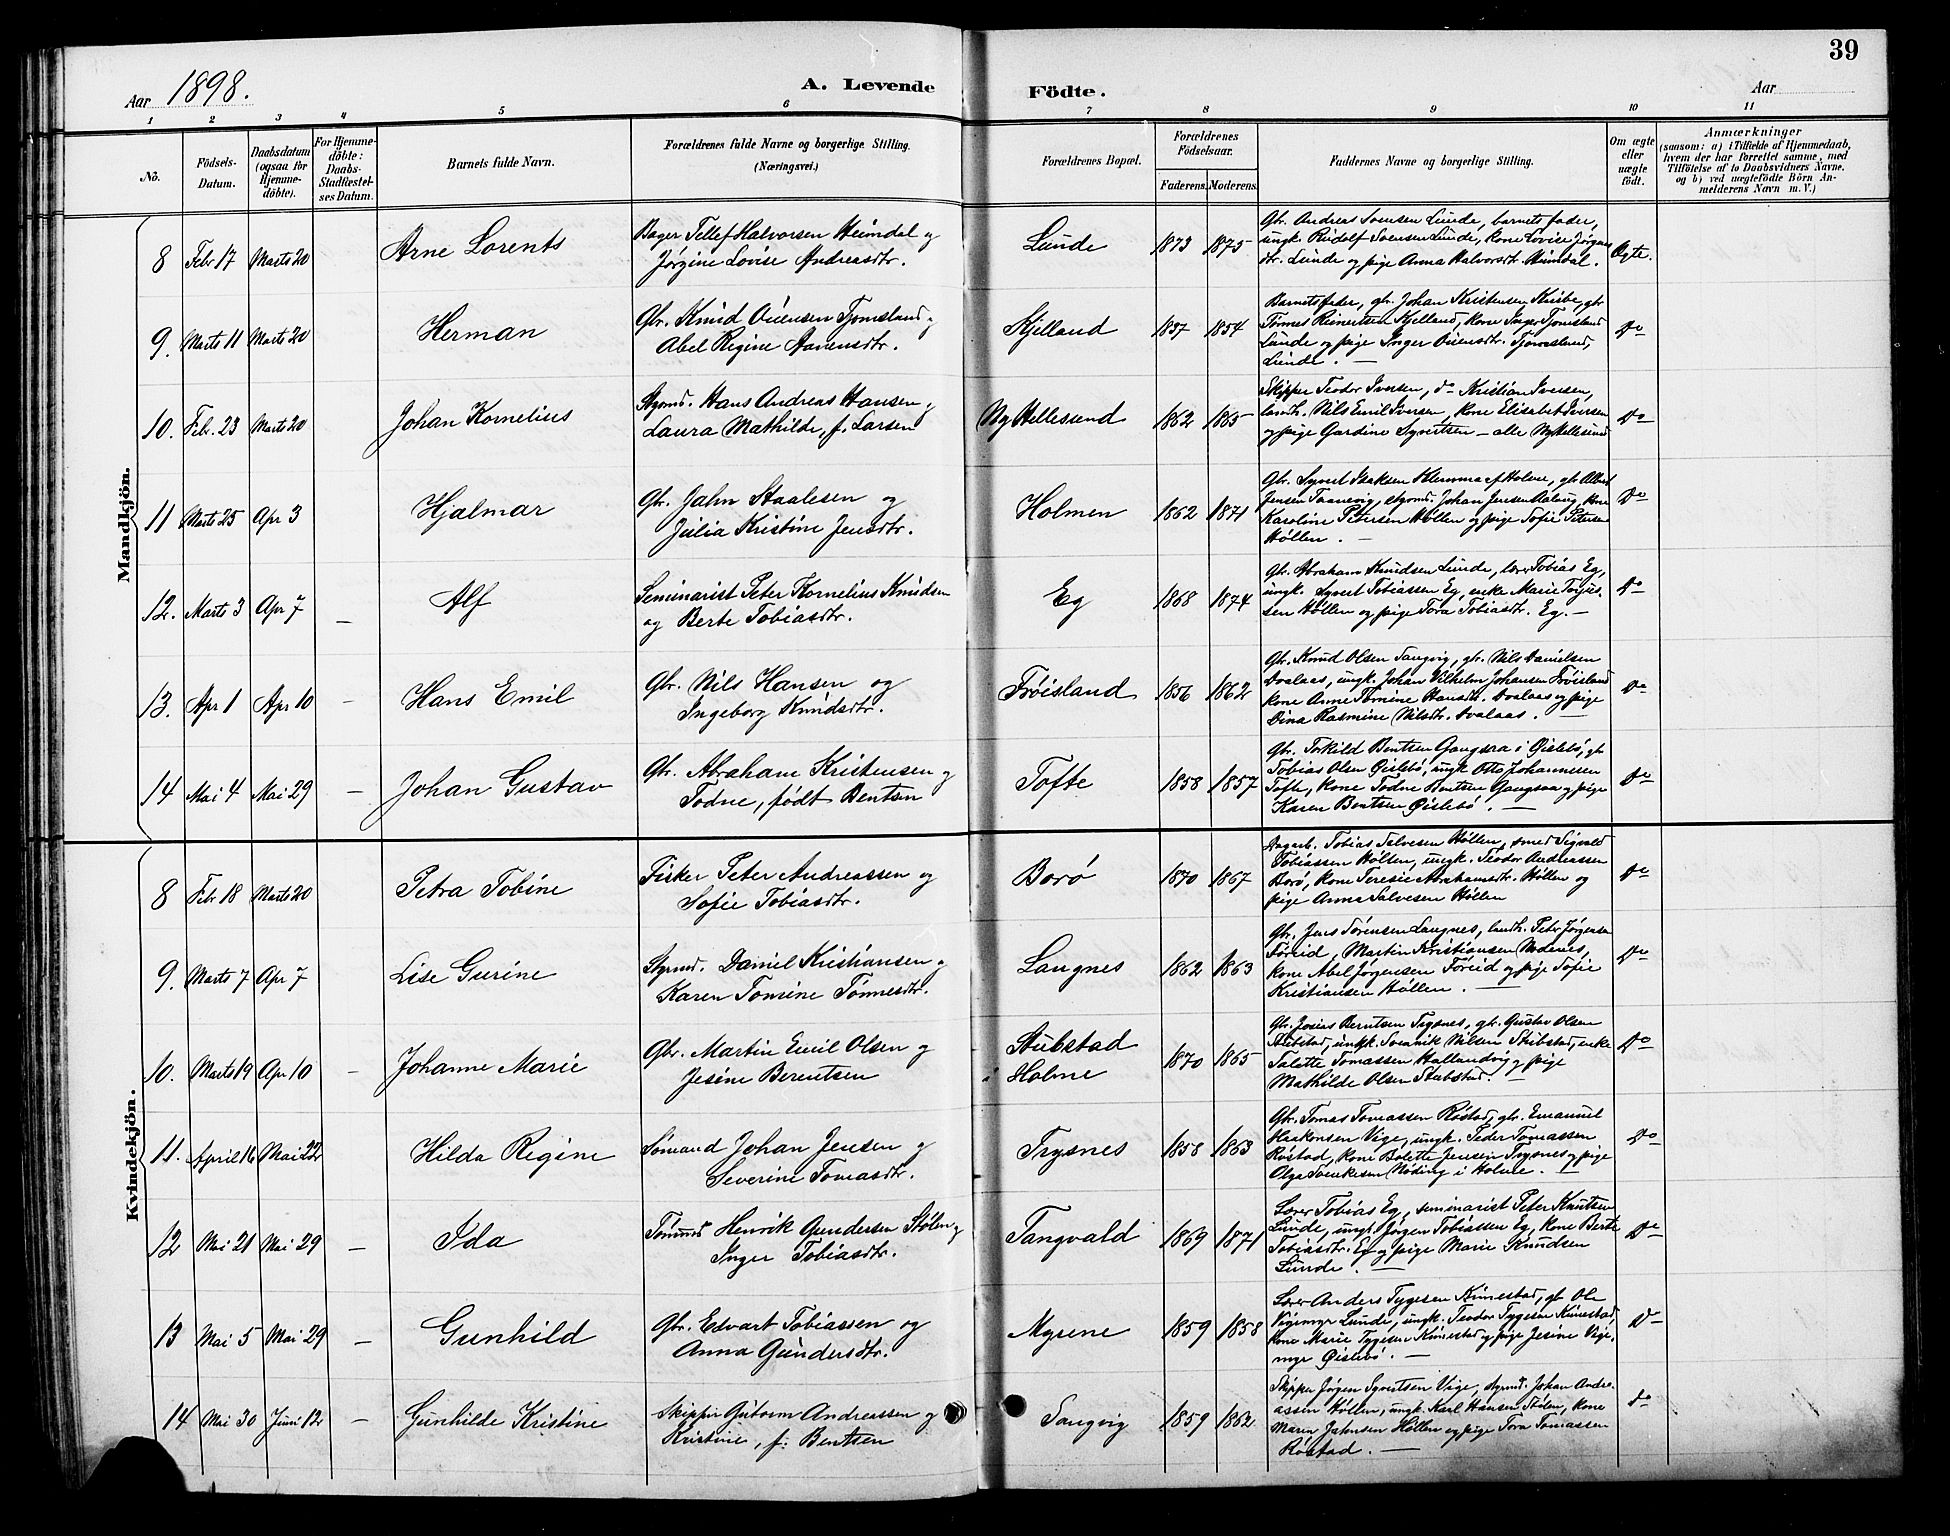 39
Aar 1898.
A. Levende Födte.
Aar
1 2 3 4 5 6 7 8 9 10 11
No.
Födsels-Datum.
Daabsdatum (ogsaa for Hjemme-döbte).
For Hjemme-döbte: Daabs-Stadfæstel-ses Datum.
Barnets fulde Navn.
Forældrenes fulde Navne og borgerlige Stilling. (Næringsvei.)
Forældrenes Bopæl.
Forældrenes Födselsaar.
Faderens. Moderens.
Faddernes Navne og borgerlige Stilling.
Om ægte eller uægte födt.
Anmærkninger
(saasom: a) i Tilfælde af Hjemmedaab,
hvem der har forrettet samme, med
Tilföielse af to Daabsvidners Navne,
og b) ved uægtefödte Börn An-
melderens Navn m. V.)
Mandkjön.
8 Febr 17 Marts 20 Arne Lorents
Bager Tellef Halvorsen Heimdal og
Jørgine Lovise Andreasdtr.
Lunde 1873 1875
Gbr. Andreas Svensen Lunde, barnets fader,
ungk. Rudolf Svensen Lunde, kone Lovise Jørgens
dtr. Lunde og pige Anna Halvorsdtr. Heimdal.
Ægte.
9. Marts 11 Marts 20 Herman
Gbr. Knud Ouensen Tjomsland og
Abel Regine Aanensdtr.
Kjelland 1857 1854
Barnets fader, gbr. Johan Kristensen Kusbe, gbr
Tønnes Reinertsen Kjelland, kone Inger Tjomsland
Lunde og pige Inger Ouensdtr. Tjomsland,
Lunde. —
Do
10. Feb. 23 Marts 20 Johan Kornelius
Styrmd. Hans Andreas Hansen og
Laura Mathilde, f. Larsen
Ny Hellesund 1862 1865
Skipper Teodor Iversen, do Kristian Iversen,
landh. Nils Emil Iversen, kone Elisabet Iversen
og pige Gardine Syvertsen — alle Ny Hellesund
Do
11 Marts 25 Apr 3 Hjalmar
Gbr. Jahn Staalesen og
Julia Kristine Jensdtr.
Holmen 1862 1871
Gbr. Syvert Isaksen Klemma af Holme, gbr Albert
Jensen Taanevig, styrmd. Johan Jensen Aabug, kone
Karoline Petersen Høllen og pige Sofie Petersen
Høllen. —
Do
12. Marts 3 Apr 7 — Alf
Seminarist Peter Kornelius Knudsen
og Berte Tobiasdtr.
Eg 1868 1874
Gbr. Abraham Knudsen Lunde, lærer Tobias Eg,
ungk. Syvert Tobiassen Eg, enke Marie Torjus-
sen Høllen og pige Tora Tobiasdtr. Eg. —
Do
13. Apr 1 Apr 10 — Hans Emil
Gbr. Nils Hansen og
Ingeborg Knudsdtr.
Frøisland 1856 1862
Gbr. Knud Olsen Langvig, gbr. Nils Danielsen
Avalaas, ungk. Johan Vilhelm Johansen Frøisland
kone Anne Tomine Hansdtr. Avalaas og pige
Dina Rasmine Nilsdtr. Avalaas. —
Do
14 Mai 4 Mai 29 — Johan Gustav
Gbr. Abraham Kristensen og
Todne, født Bentsen
Tofte 1858 1857
Gbr. Torkild Bentsen Gangsaa i Øislebø, gbr
Tobias Olsen Øislebø, ungk Otto Johannesen
Tofte, kone Todne Bentsen Gangsaa og pige
Karen Bentsen Øislebø. —
Do
Kvindekjön.
8 Febr 18 Marts 20 Petra Tobine
Fisker Peter Andreassen og
Sofie Tobiasdtr.
Borø 1870 1867
Dagarb. Tobias Salvesen Høllen, smed Sigvald
Tobiassen Høllen, ungk. Teodor Andreassen
Borø, kone Teresie Abrahamsdtr. Høllen og
pige Anna Salvesen Høllen
Do
9. Marts 7 Apr 7 Lise Gurine
Styrmd. Daniel Kristiansen og
Karen Tomine Tønnesdtr.
Langnes 1862 1863
Gbr. Jens Sørensen Langnes, landh. Peter Jørgensen
Føreid, Martin Kristiansen Nodenes,
kone Abel Jørgensen Føreid og pige Sofie
Kristiansen Høllen. —
Do
10. Marts 19 Apr 10 — Johanne Marie
Gbr. Martin Emil Olsen og
Jesine Berentsen
Stubstad
i Holme 1870 1865
Gbr. Josias Berntsen Trysnes, gbr. Gustav Olsen
Stubstad, ungk. Nilsen Stubstad, enke
Salette Tomassen Hallandvig og pige
Mathilde Olsen Stubstad. —
Do
11. April 16 Mai 22 Hilda Regine
Sømand Johan Jensen og
Severine Tomasdtr.
Trysnes 1858 1863
Gbr. Tomas Tomassen Røstad, gbr. Emanuel
Haakonsen Vige, ungk. Peder Tomassen
Røstad, kone Bolette Jensen Trysnes og pige
Olga Svenkesen Nøding i Holme. —
Do
12 Mai 21 Mai 29 — Ida
Tømmd Henrik Gundersen Stølen og
Inger Tobiasdtr.
Tangvald 1869 1871
Lærer Tobias Eg, seminarist Peter Knutsen
Lunde, ungk. Jørgen Tobiassen Eg, kone Berte
Tobiasdtr. Eg og pige Marie Knudsen
Lunde. —
Do
13 Mai 5 Mai 29 — Gunhild
Gbr. Edvart Tobiassen og
Anna Gundersdtr.
Myrene 1859 1858
Lærer Anders Tygesen Kinestad, gbr Ole
Vigemyr Lunde, ungk. Teodor Tygesen Kinestad,
kone Marie Tygesen Kinestad og pige Jesine Vige-
myr Øislebø. —
Do
14 Mai 30 Juni 12 — Gunhilde Kristine
Skipper Gutorm Andreassen og
Kristine, f. Bentsen
Langvig 1859 1862
Skipper Jørgen Syvertsen Vige, styrmd. Johan Andre-
assen Høllen, ungk. Karl Hansen Stølen, kone
Maren Jahnsen Høllen og pige Tora Tomassen
Røstad. —
do